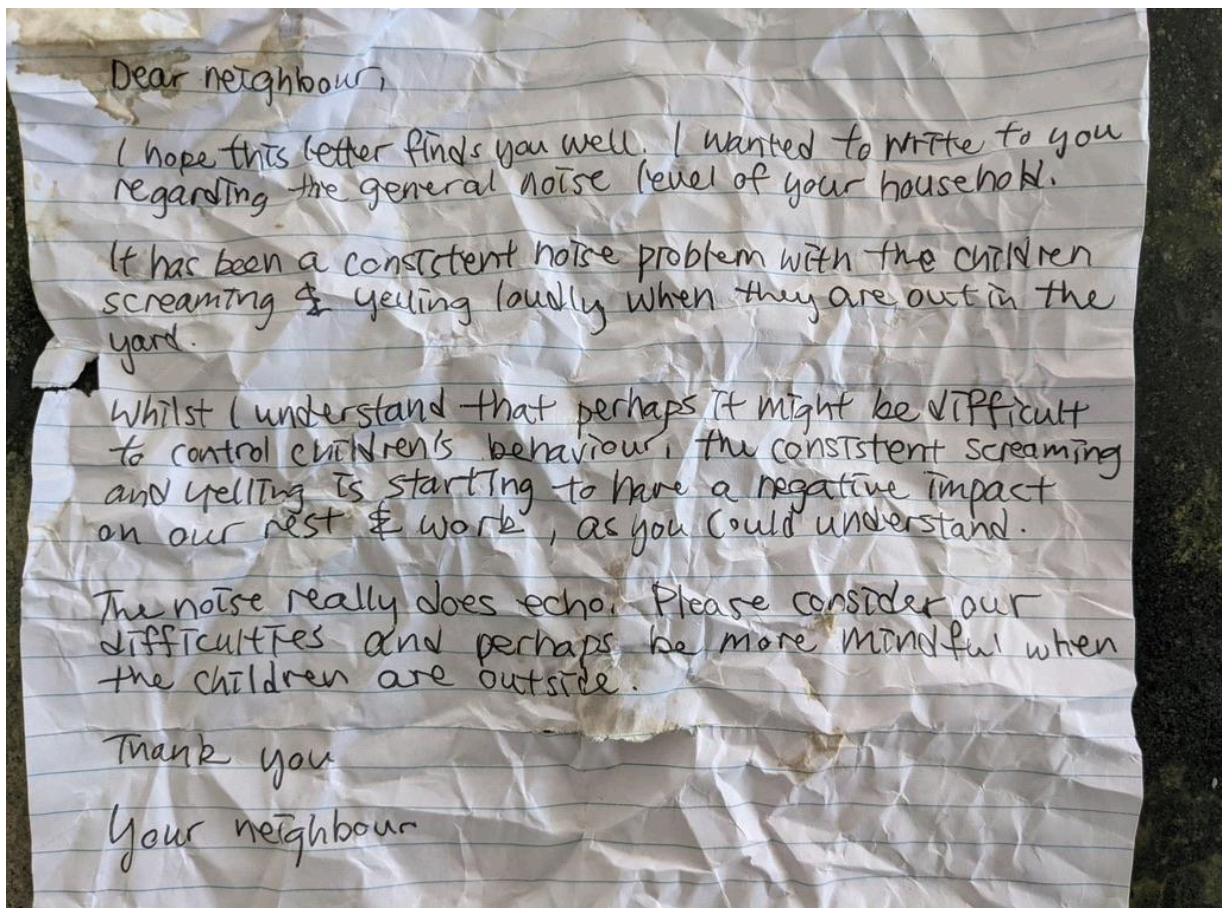 Dear neighbour,
I hope this letter finds you well. I wanted to write to you
regarding the general noise level of your household.
It has been a consistent noise problem with the children
screaming & yelling loudly when they are out in the
yard.
Whilst I understand that perhaps it might be difficult
to control children's behaviour, the consistent screaming
and yelling is starting to have a negative impact
on our rest & work, as you could understand.
The noise really does echo. Please consider our
difficulties and perhaps be more mindful when
the children are outside.
Thank you
Your neighbour